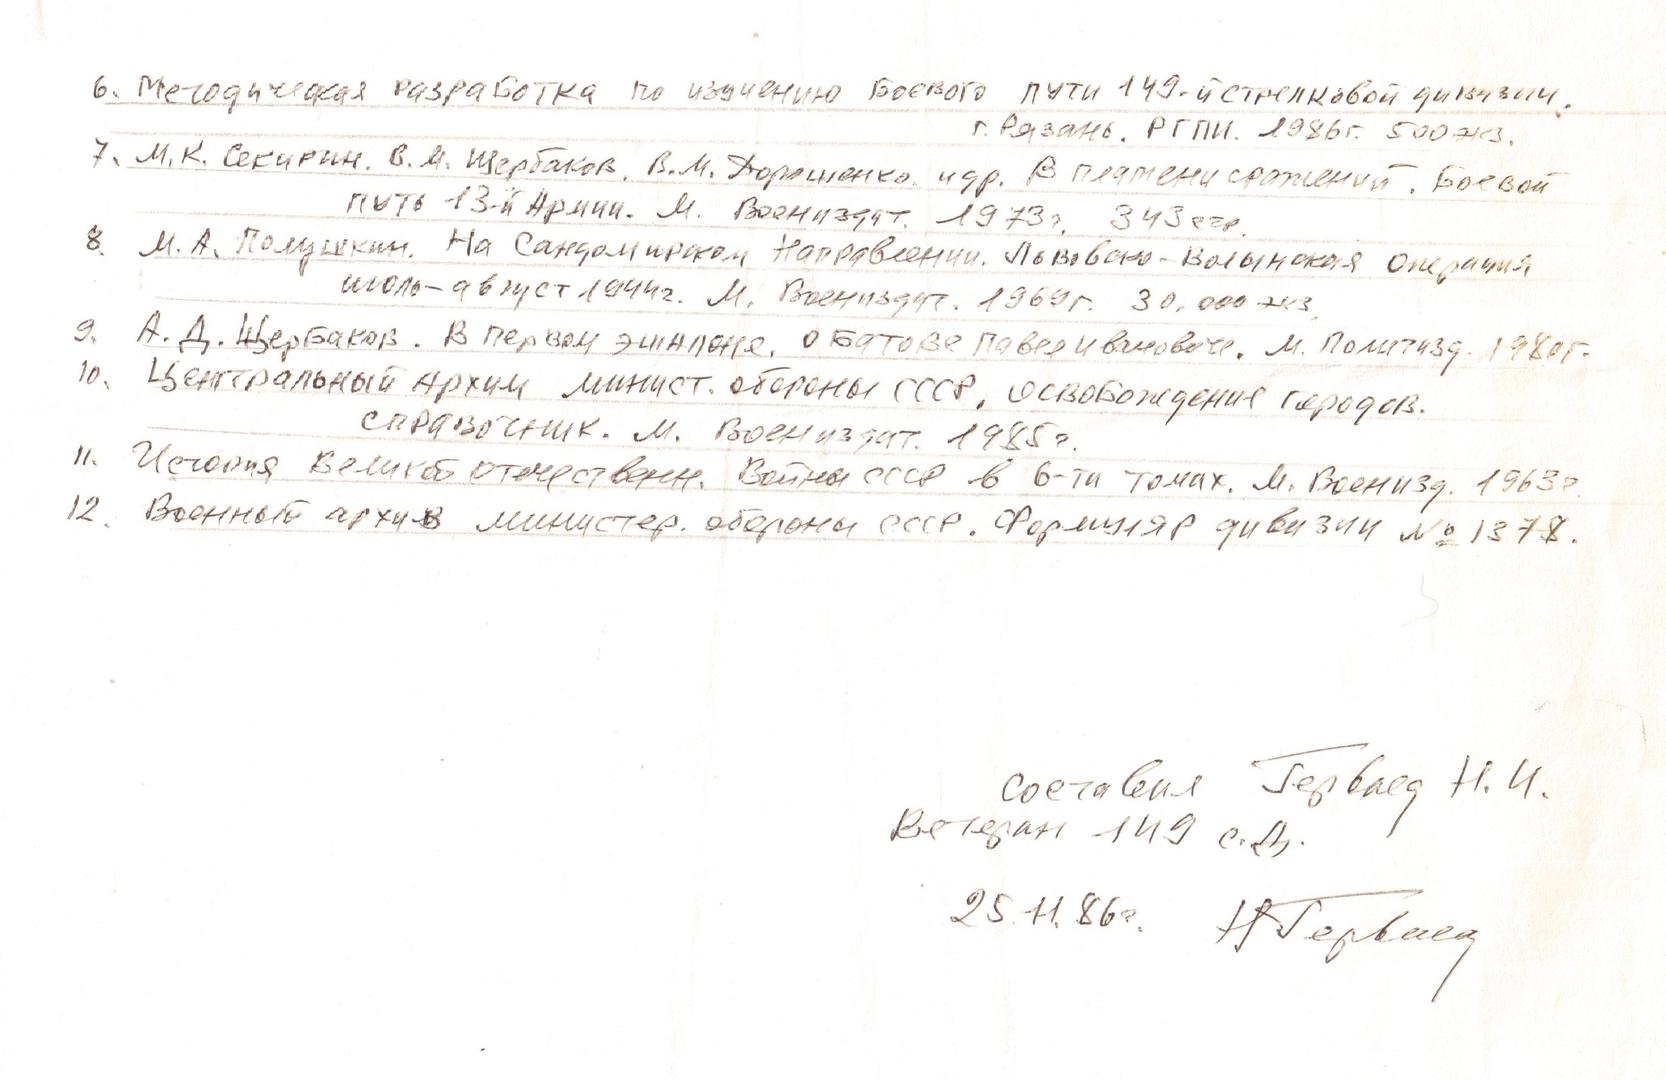 6. Методическая разработка по изучению Боевого пути 149-й стрелковой дивизии.
г. Рязань. РГПИ. 1986г. 500 экз.
7. М.К. Секирин. В.М. Щербаков. В.М. Дорошенко. и др. В пламени сражений. Боевой
путь 13-й Армии. М. Воениздат. 1973г. 343 стр.
8. М.А. Полушкин. На Сандомирском Направлении. Львовско-Волынская операция
июль-август 1944г. М. Воениздат. 1969г. 30.000 экз.
9. А.Д. Щербаков. В первом эшалоне. О Батове Павле Ивановиче. М. Политизд. 1980г.
10. Центральный Архив минист. обороны СССР. Освобождение городов.
справочник. М. Воениздат. 1985г.
11. История Великой отечественн. Войны СССР в 6-ти томах. М. Воениzд. 1963г.
12. Военный архив министер. обороны СССР. Формуляр дивизии № 1378.
составил Н.И.
Ветеран 149 с.д.
25.11.86г.